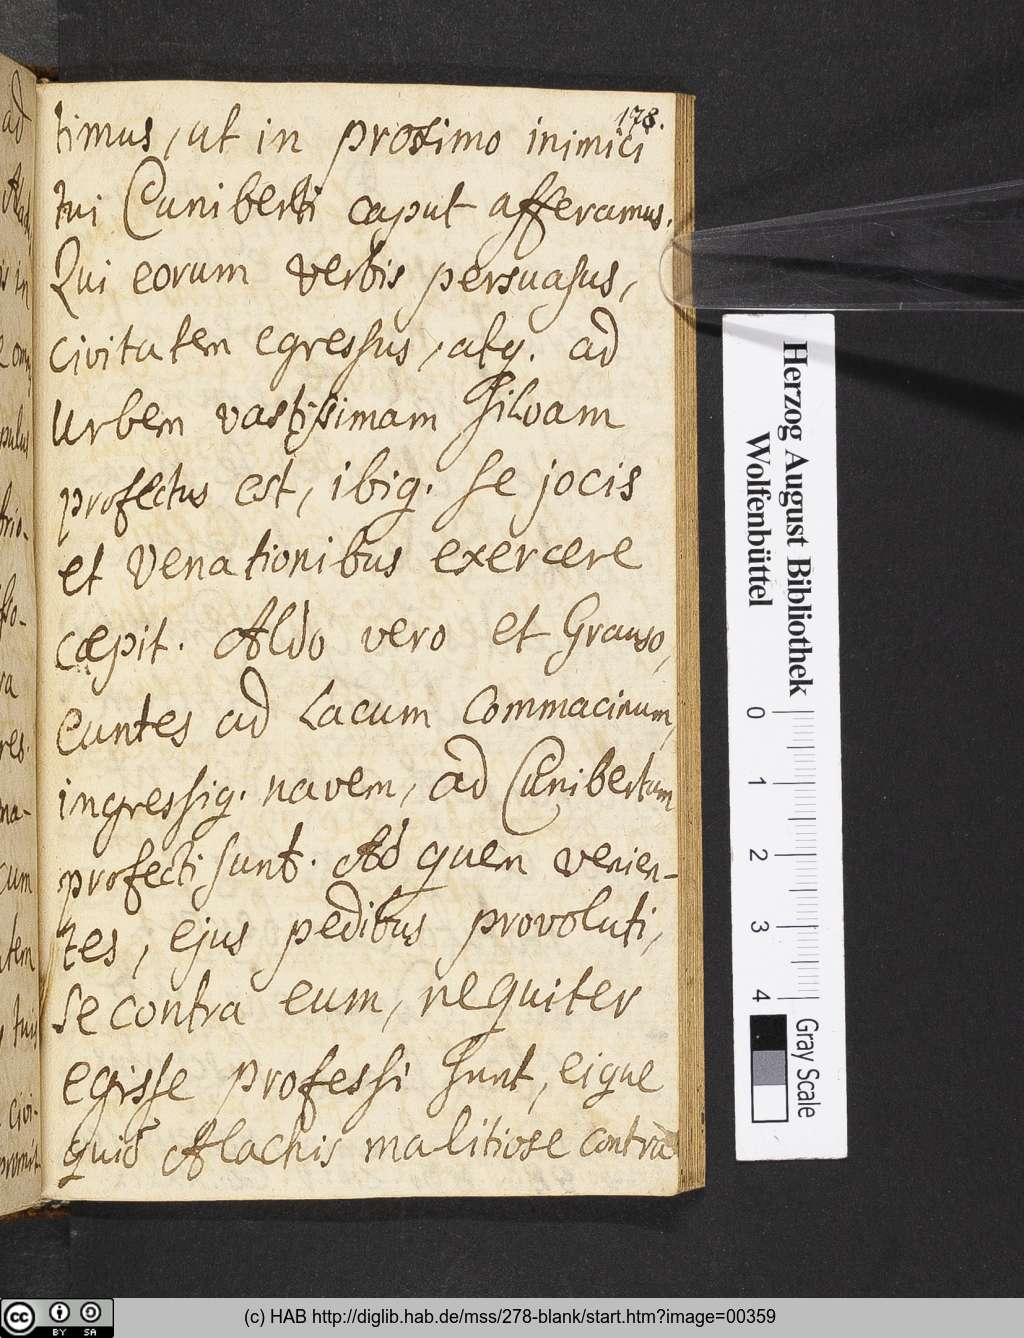 178.
timus, ut in proximo inimici
tui Cuniberti caput afferamus.
Qui eorum verbis persuasus,
civitatem egressus, atq. ad
Urbem vastissimam silvam
profectus est, ibiq. se jocis
et venationibus exercere
cæpit. Aldo vero et Grauso,
euntes ad Lacum Commacinum,
ingressiq. navem, ad Cunibertum
profecti sunt. Ad quem venien-
tes, ejus pedibus provoluti,
se contra eum, nequiter
egisse professi sunt, eique
quid Alachis malitiose contra
ad
is in
pulus
trio-
ra
res.
ma-
cum
tem
tuis
civi-
Herzog August Bibliothek
Wolfenbüttel
0 1 2 3 4
Gray Scale
cc BY SA
(c) HAB http://diglib.hab.de/mss/278-blank/start.htm?image=00359